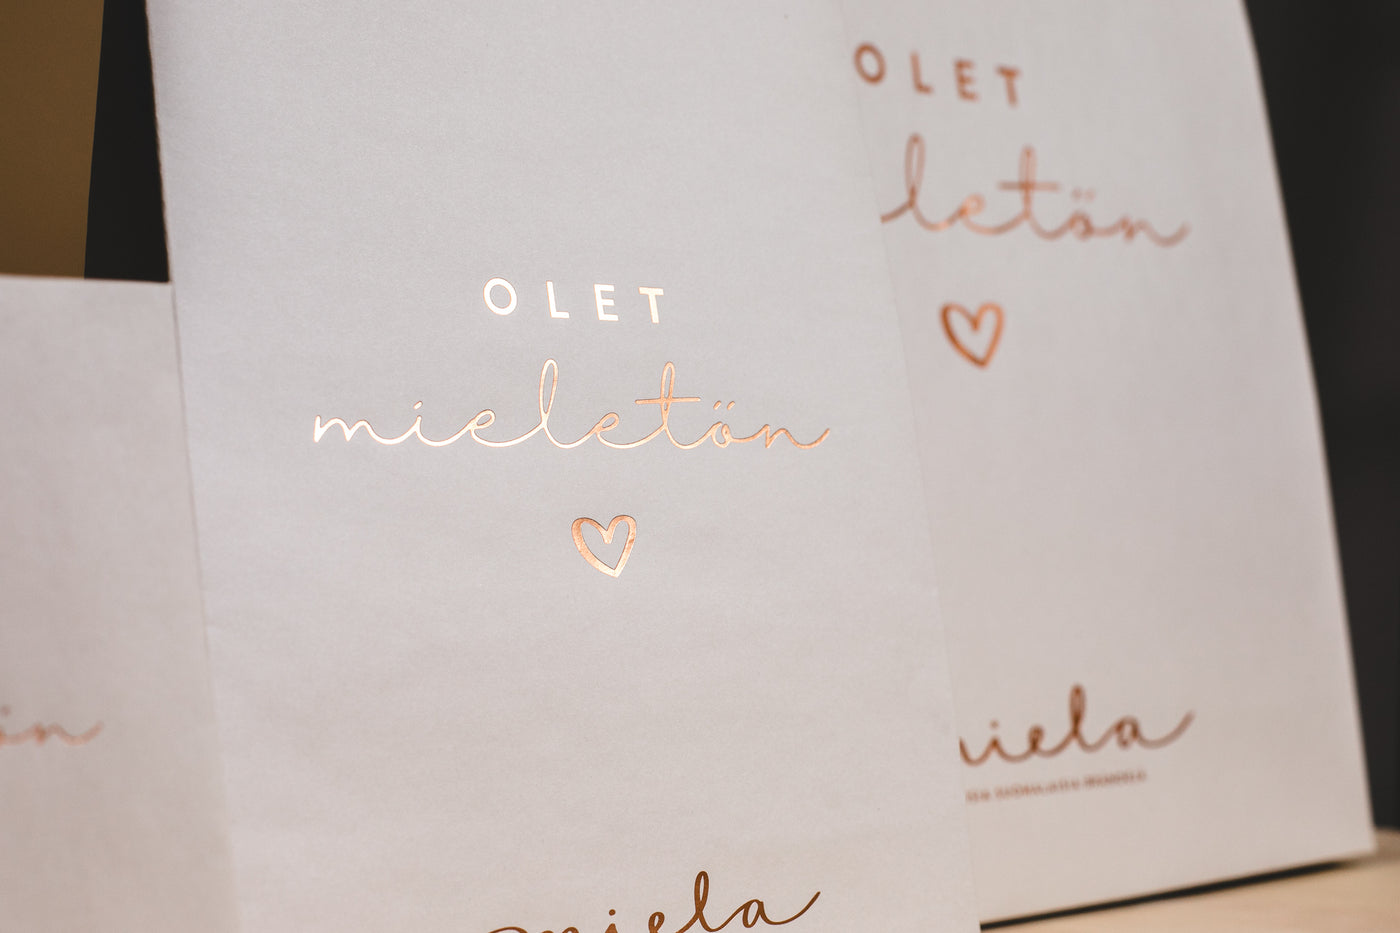 OLET
mieletön
miela
OLET
letön
iela
ön